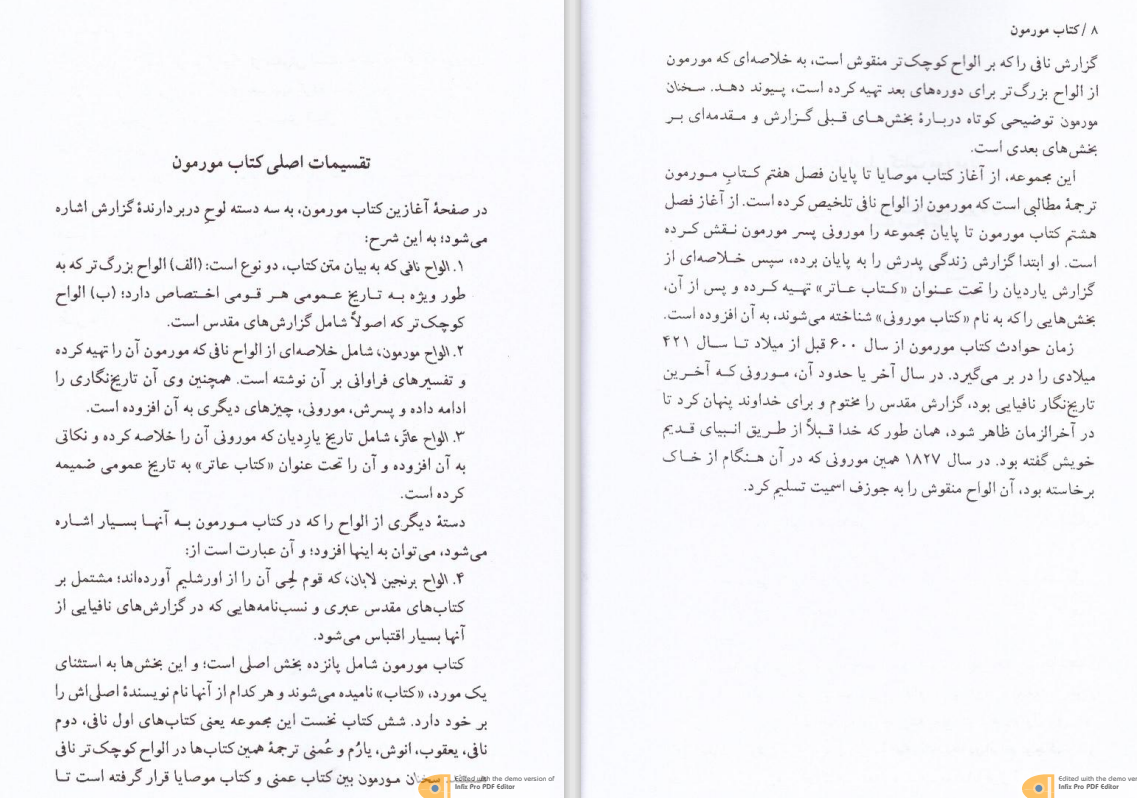 تقسیمات اصلی کتاب مورمون
در صفحهٔ آغازین کتاب مورمون، به سه دسته لوحِ دربردارندهٔ گزارش اشاره
می‌شود؛ به این شرح:
۱. الواح نافی که به بیان متن کتاب، دو نوع است: (الف) الواح بزرگ‌تر که به
طور ویژه به تاریخ عمومی هر قومی اختصاص دارد؛ (ب) الواح
کوچک‌تر که اصولاً شامل گزارش‌های مقدس است.
۲. الواح مورمون، شامل خلاصه‌ای از الواح نافی که مورمون آن را تهیه کرده
و تفسیرهای فراوانی بر آن نوشته است. همچنین وی آن تاریخ‌نگاری را
ادامه داده و پسرش، مورونی، چیزهای دیگری به آن افزوده است.
۳. الواح عاتَر، شامل تاریخ یارِدیان که مورونی آن را خلاصه کرده و نکاتی
به آن افزوده و آن را تحت عنوان «کتاب عاتر» به تاریخ عمومی ضمیمه
کرده است.
دستهٔ دیگری از الواح را که در کتاب مورمون به آنها بسیار اشاره
می‌شود، می‌توان به اینها افزود؛ و آن عبارت است از:
۴. الواح برنجین لابان، که قوم لَحِی آن را از اورشلیم آورده‌اند؛ مشتمل بر
کتاب‌های مقدس عبری و نسب‌نامه‌هایی که در گزارش‌های نافیایی از
آنها بسیار اقتباس می‌شود.
کتاب مورمون شامل پانزده بخش اصلی است؛ و این بخش‌ها به استثنای
یک مورد، «کتاب» نامیده می‌شوند و هر کدام از آنها نام نویسندهٔ اصلی‌اش را
بر خود دارد. شش کتاب نخست این مجموعه یعنی کتاب‌های اول نافی، دوم
نافی، یعقوب، انوش، یارُم و عُمنی ترجمهٔ همین کتاب‌ها در الواح کوچک‌تر نافی
سخنان مورمون بین کتاب عمنی و کتاب موصایا قرار گرفته است تا
Edited with the demo version of
Infix Pro PDF Editor
۸ / کتاب مورمون
گزارش نافی را که بر الواح کوچک‌تر منقوش است، به خلاصه‌ای که مورمون
از الواح بزرگ‌تر برای دوره‌های بعد تهیه کرده است، پیوند دهد. سخنان
مورمون توضیحی کوتاه دربارهٔ بخش‌های قبلی گزارش و مقدمه‌ای بر
بخش‌های بعدی است.
این مجموعه، از آغاز کتاب موصایا تا پایان فصل هفتم کتابِ مورمون
ترجمهٔ مطالبی است که مورمون از الواح نافی تلخیص کرده است. از آغاز فصل
هشتم کتاب مورمون تا پایان مجموعه را مورونی پسر مورمون نقش کرده
است. او ابتدا گزارش زندگی پدرش را به پایان برده، سپس خلاصه‌ای از
گزارش یاردیان را تحت عنوان «کتاب عاتر» تهیه کرده و پس از آن،
بخش‌هایی را که به نام «کتاب مورونی» شناخته می‌شوند، به آن افزوده است.
زمان حوادث کتاب مورمون از سال ۶۰۰ قبل از میلاد تا سال ۴۲۱
میلادی را در بر می‌گیرد. در سال آخر یا حدود آن، مورونی که آخرین
تاریخ‌نگار نافیایی بود، گزارش مقدس را مختوم و برای خداوند پنهان کرد تا
در آخرالزمان ظاهر شود، همان طور که خدا قبلاً از طریق انبیای قدیم
خویش گفته بود. در سال ۱۸۲۷ همین مورونی که در آن هنگام از خاک
برخاسته بود، آن الواح منقوش را به جوزف اسمیت تسلیم کرد.
Edited with the demo ver
Infix Pro PDF Editor